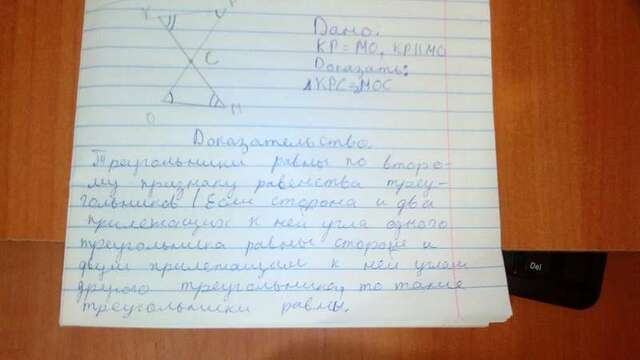 К Р
Дано:
КР = МО, КР || МО
С
Доказать:
△КРС = МОС
О М
Доказательство.
Треугольники равны по второ-
му признаку равенства треу-
гольников (Если сторона и два
прилежащих к ней угла одного
треугольника равны стороне и
двум прилежащим к ней углам
другого треугольника, то такие
треугольники равны.
Del